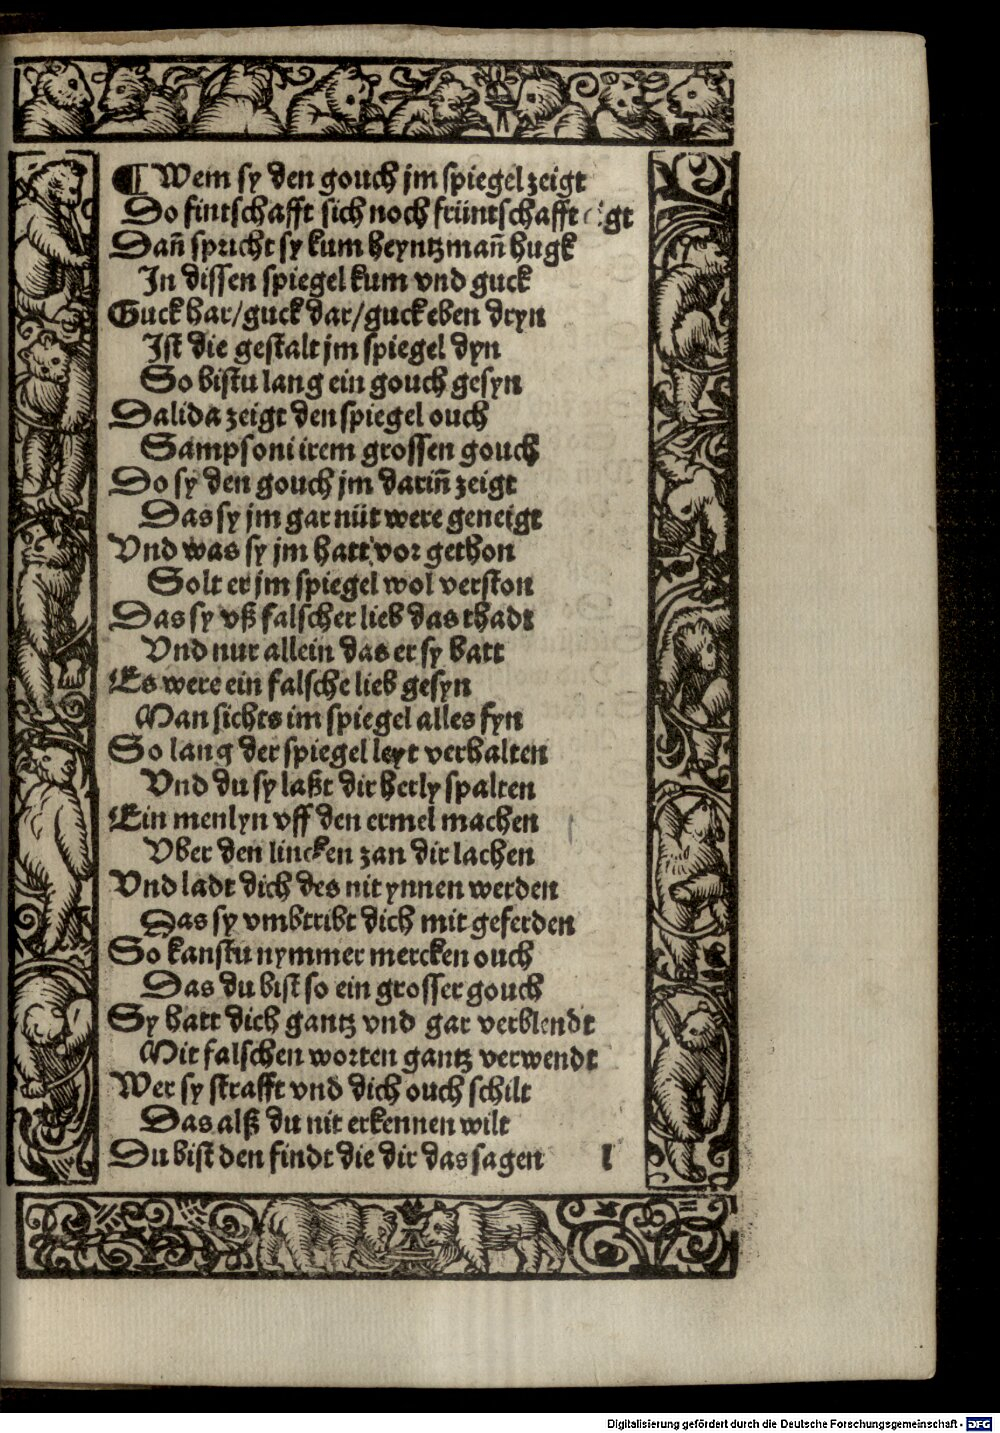 ¶ Wem sy den gouch jm spiegel zeigt
Do fintschafft sich noch früntschafft
Dañ spricht sy kum heyntzmañ hugk
In dissen spiegel kum vnd guck
Guck har/guck dar/guck eben dryn
Ist die gestalt jm spiegel dyn
So bistu lang ein gouch gesyn
Dalida zeigt den spiegel ouch
Sampsoni irem grossen gouch
Do sy den gouch jm dariñ zeigt
Das sy jm gar nüt were geneigt
Vnd was sy jm hatt vor gethon
Solt er jm spiegel wol verston
Das sy vß falscher lieb das thadt
Vnd nur allein das er sy batt
Es were ein falsche lieb gesyn
Man sichts im spiegel alles fyn
So lang der spiegel leyt verhalten
Vnd du sy laßt dir herly spalten
Ein menlyn vff den ermel machen
Vber den lincken zan dir lachen
Vnd ladt dich des nit ynnen werden
Das sy vmbtribt dich mit geferden
So kanstu nymmer mercken ouch
Das du bist so ein grosser gouch
Sy hatt dich gantz vnd gar verblendt
Mit falschen worten gantz verwendt
Wer sy strafft vnd dich ouch schilt
Das alß du nit erkennen wilt
Du bist den findt die dir das sagen l
Digitalisierung gefördert durch die Deutsche Forschungsgemeinschaft - DFG